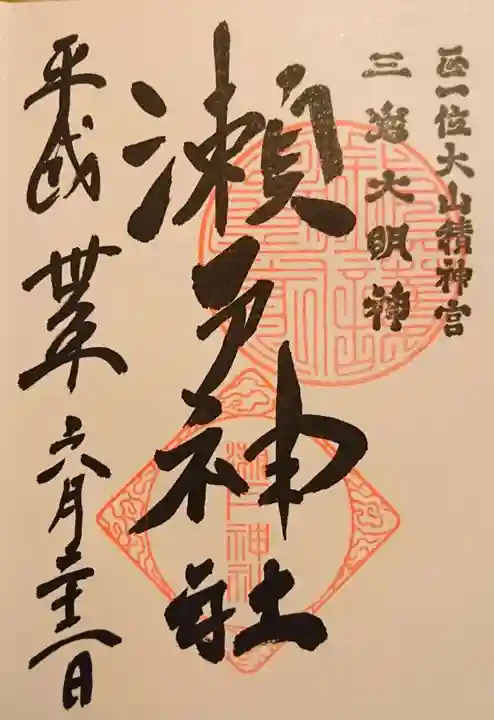 正一位大山積神宮
三嶌大明神
瀬戸神社
平成卅年六月二十 日
瀬戸神社